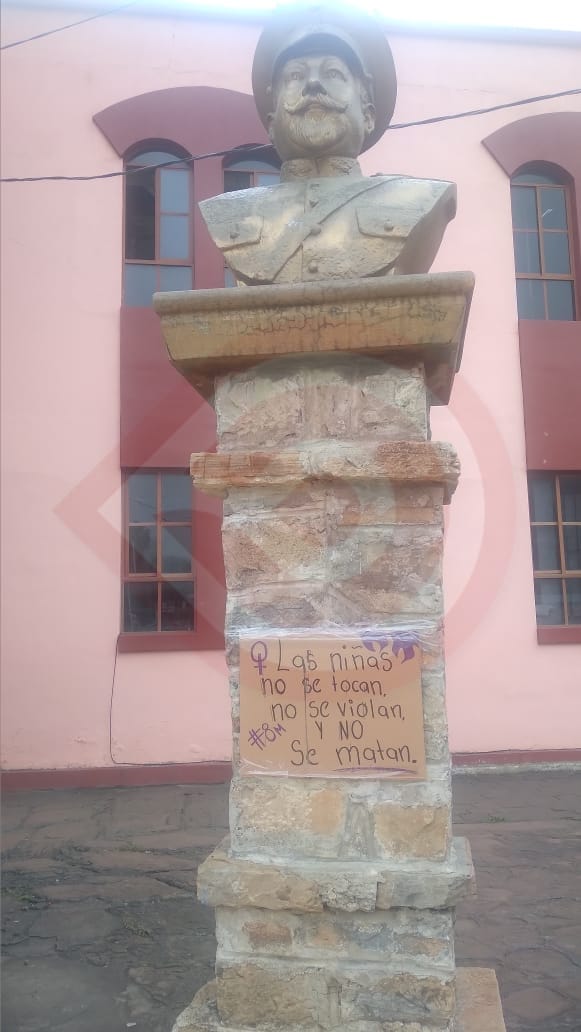 ♀ Las niñas
no se tocan,
no se violan,
Y NO
#8M
Se matan.